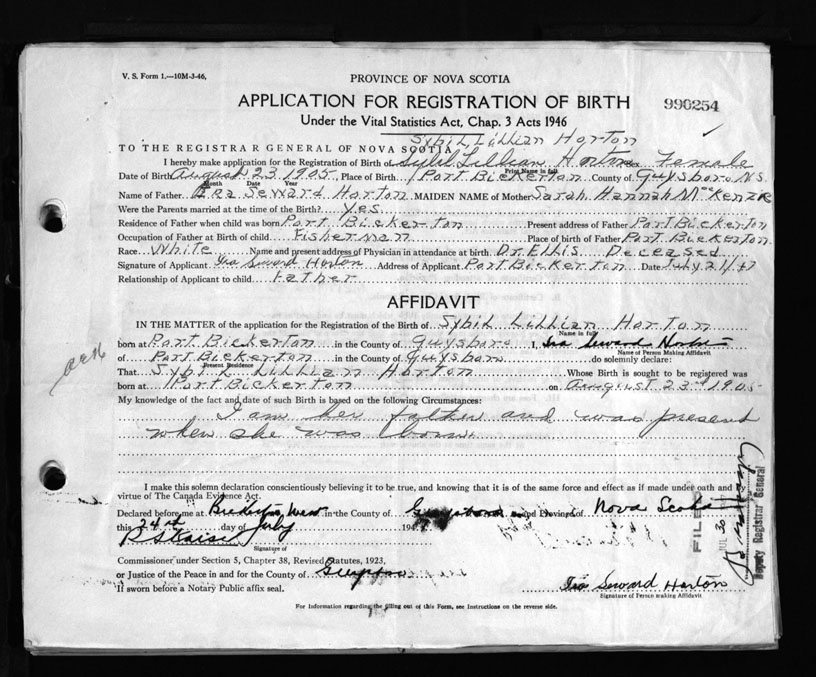 V. S. Form 1.—10M-3-46,
PROVINCE OF NOVA SCOTIA
APPLICATION FOR REGISTRATION OF BIRTH
990254
Under the Vital Statistics Act, Chap. 3 Acts 1946
Sybil Lillian Horton
TO THE REGISTRAR GENERAL OF NOVA SCOTIA
I hereby make application for the Registration of Birth of Sybil Lillian Horton Sex Female
Print Name in full
Date of Birth August 23 1905, Place of Birth Port Bickerton County of Guysboro N.S.
Month Date Year
Name of Father Ira Seward Horton MAIDEN NAME of Mother Sarah Hannah McKenzie
Were the Parents married at the time of the Birth? Yes
Residence of Father when child was born Port Bickerton Present address of Father Port Bickerton
Occupation of Father at Birth of child Fisherman Place of birth of Father Port Bickerton
Race White Name and present address of Physician in attendance at birth Dr. Ellis Deceased
Signature of Applicant Ira Seward Horton Address of Applicant Port Bickerton Date July 21/47
Relationship of Applicant to child Father
AFFIDAVIT
IN THE MATTER of the application for the Registration of the Birth of Sybil Lillian Horton
Name in full
born at Port Bickerton in the County of Guysboro I, Ira Seward Horton
Name of Person Making Affidavit
of Port Bickerton in the County of Guysboro do solemnly declare:
Present Residence
That Sybil Lillian Horton Whose Birth is sought to be registered was
born at Port Bickerton on August 23rd 1905
My knowledge of the fact and date of such Birth is based on the following Circumstances:
I am her father and was present
when she was born.
I make this solemn declaration conscientiously believing it to be true, and knowing that it is of the same force and effect as if made under oath and by
virtue of The Canada Evidence Act.
Declared before me at in the County of and Province of Nova Scotia
this 24th day of July 194
Signature of
Commissioner under Section 5, Chapter 38, Revised Statutes, 1923,
or Justice of the Peace in and for the County of
If sworn before a Notary Public affix seal.
Ira Seward Horton
Signature of Person making Affidavit
For Information regarding the filling out of this Form, see Instructions on the reverse side.
FILED
JUL 30
Deputy Registrar General